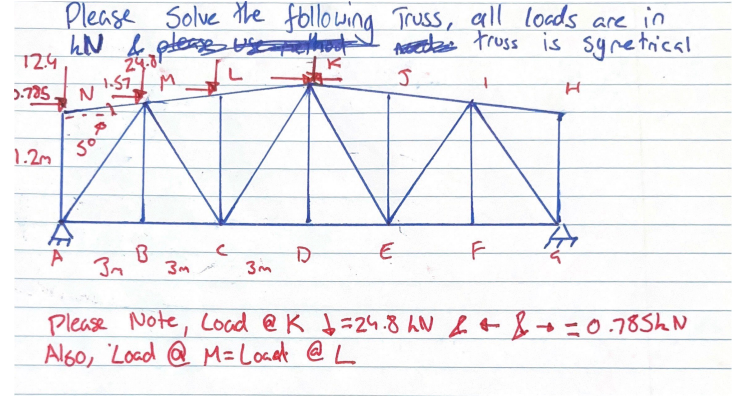 Please Solve the following Truss, all loads are in
kN & please use method truss is symetrical
12.4 24.8 K
0.785 N 1.57 M L J I H
5°
1.2m
A B C D E F G
3m 3m 3m
Please Note, Load @ K ↓=24.8 kN & ← & → = 0.785kN
Also, Load @ M= Load @ L